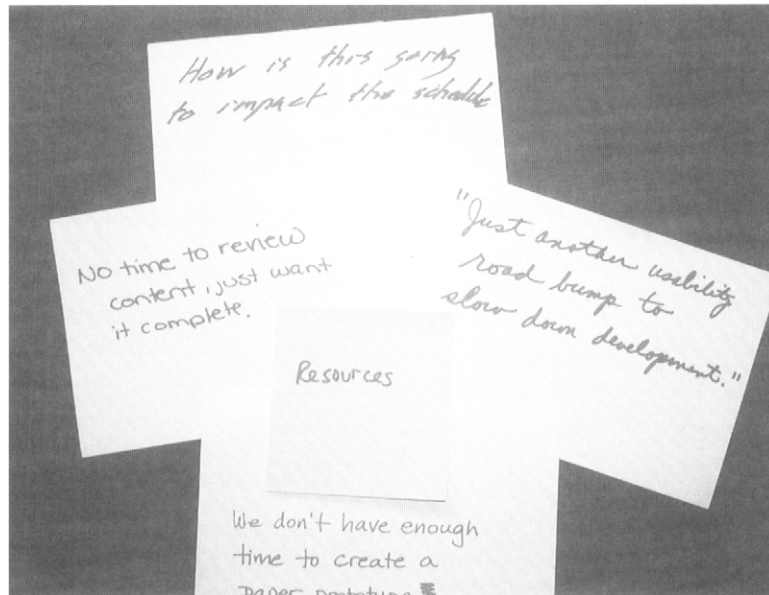 How is this going
to impact the schedule
No time to review
content, just want
it complete.
"Just another usability
road bump to
slow down development."
Resources
We don't have enough
time to create a
paper prototype